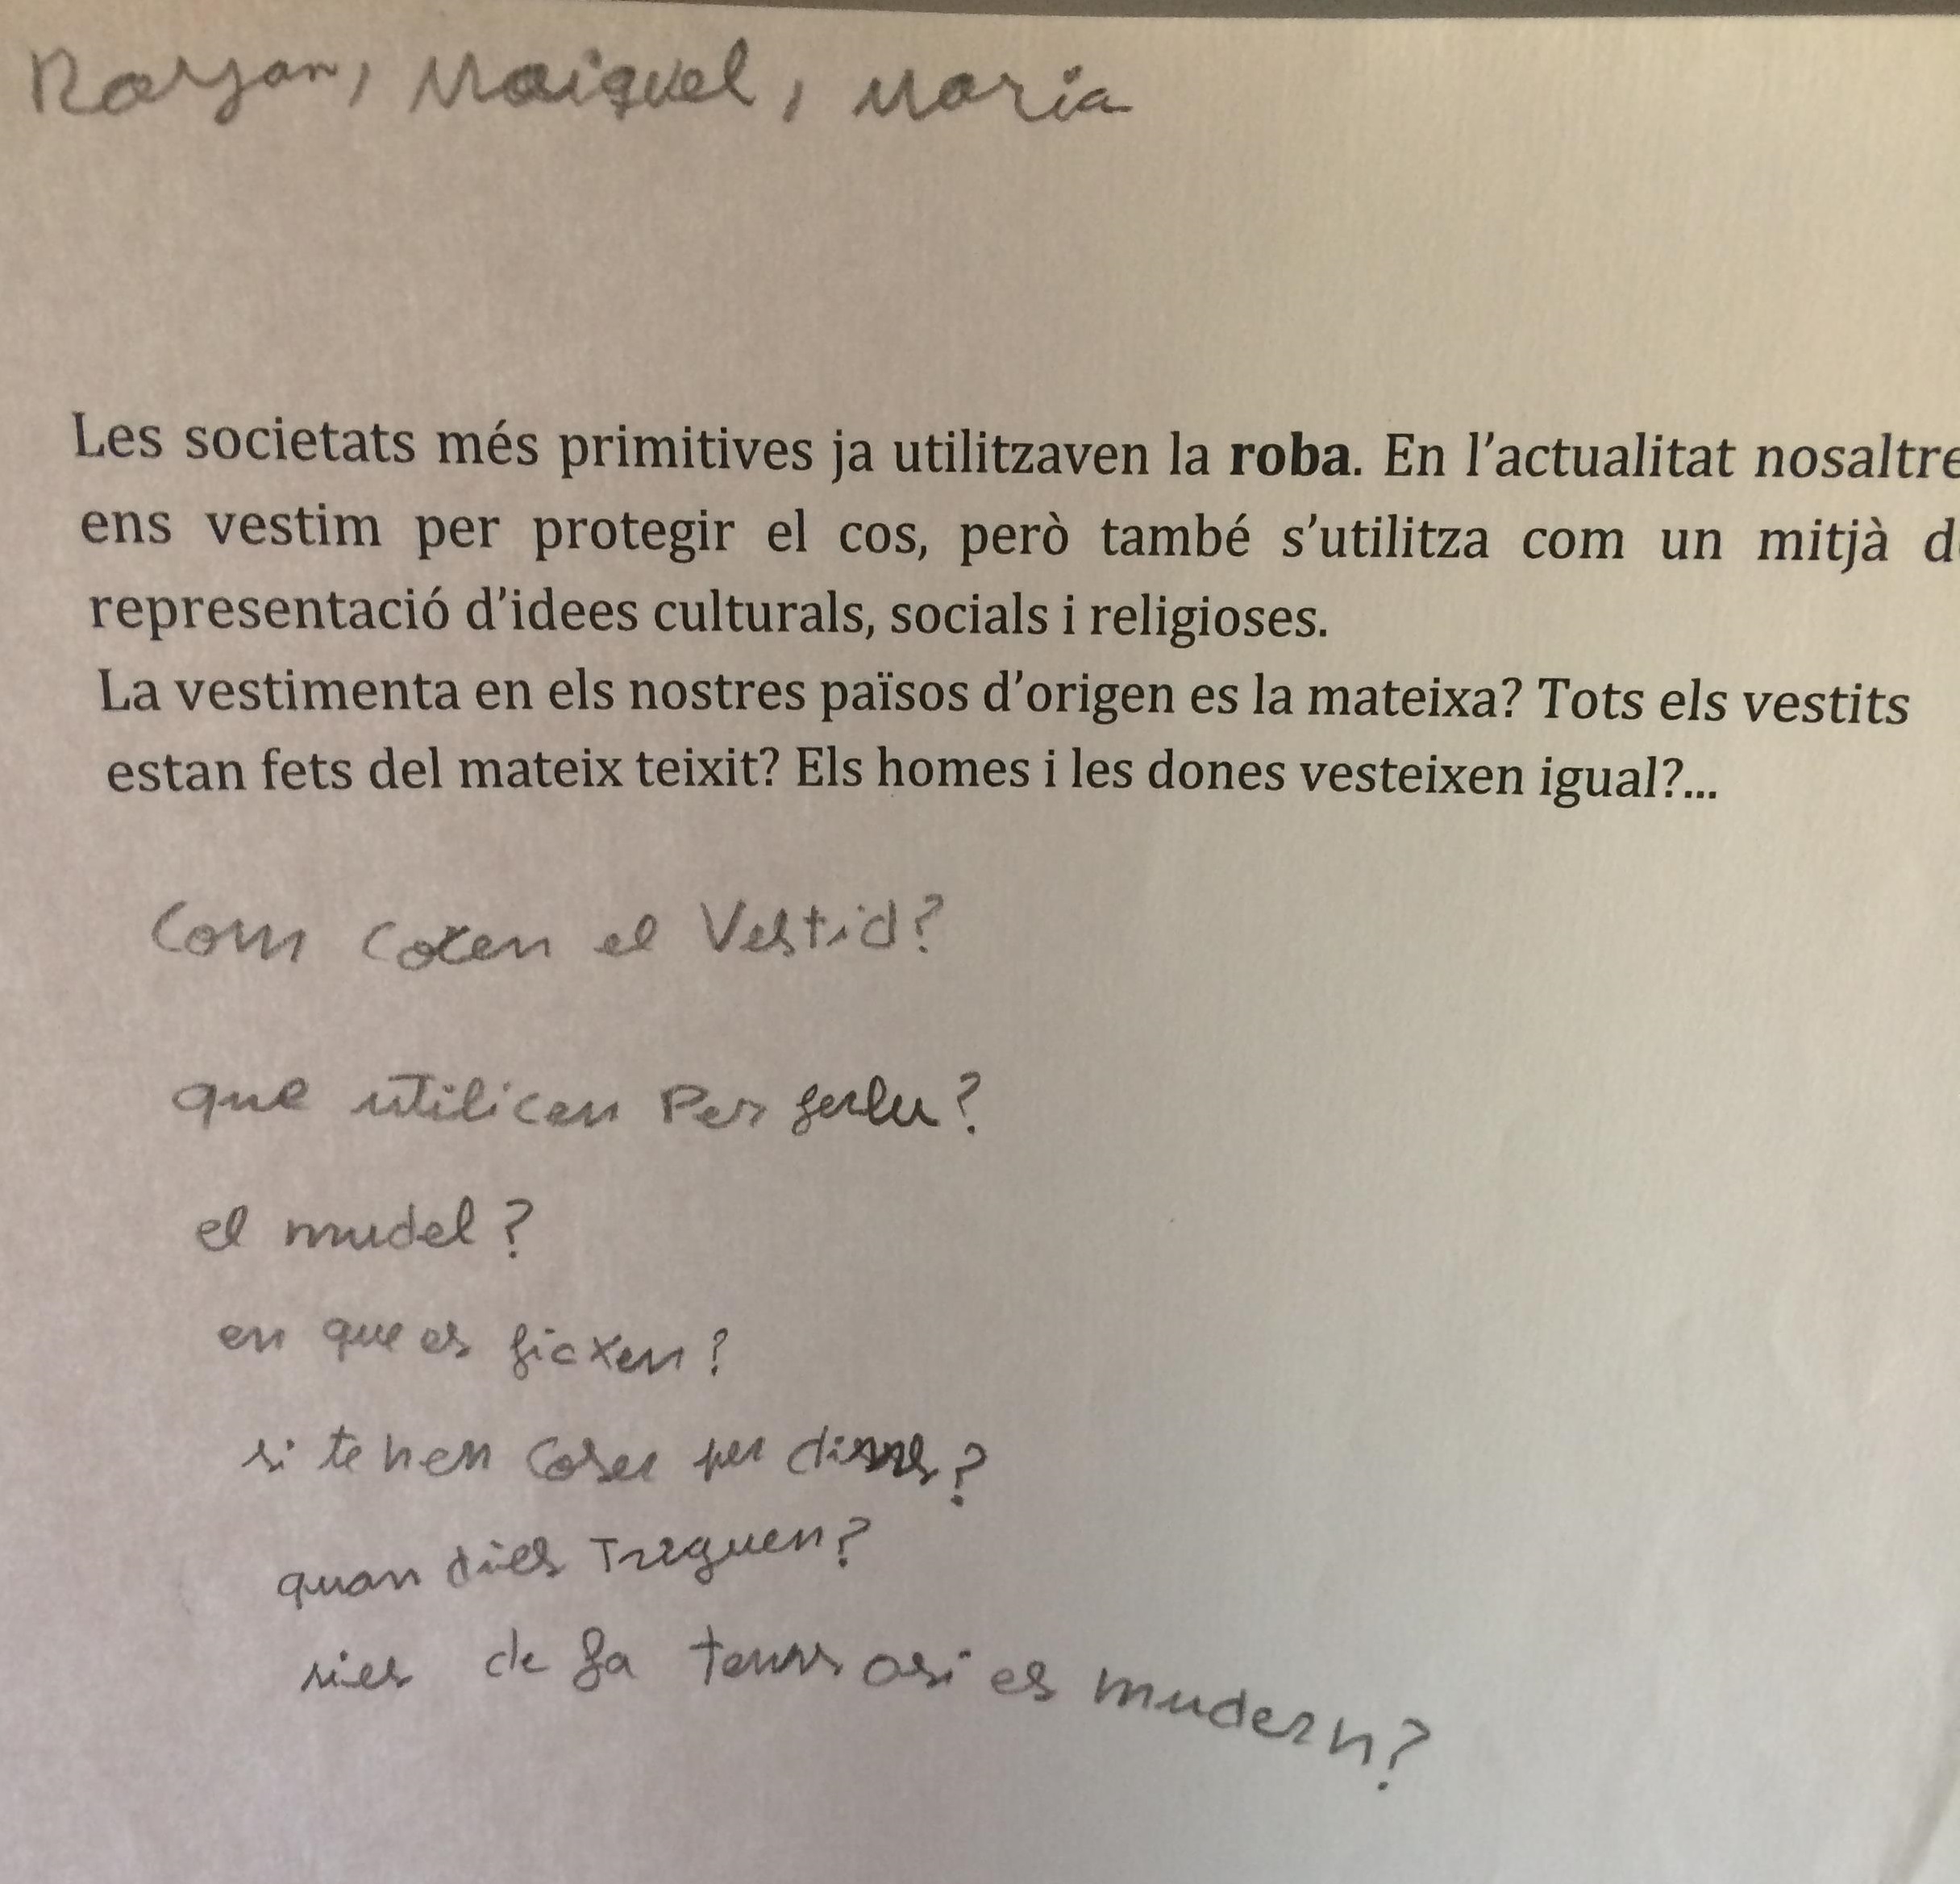 Rayan, Maiquel, Maria
Les societats més primitives ja utilitzaven la roba. En l'actualitat nosaltre
ens vestim per protegir el cos, però també s'utilitza com un mitjà d
representació d'idees culturals, socials i religioses.
La vestimenta en els nostres països d'origen es la mateixa? Tots els vestits
estan fets del mateix teixit? Els homes i les dones vesteixen igual?...
Com coxen el Vestid?
que utilicen Per ferlu?
el mudel?
en que es ficxen?
si tenen coses per
quan dies Treguen?
sies de fa temps osi es mudern?